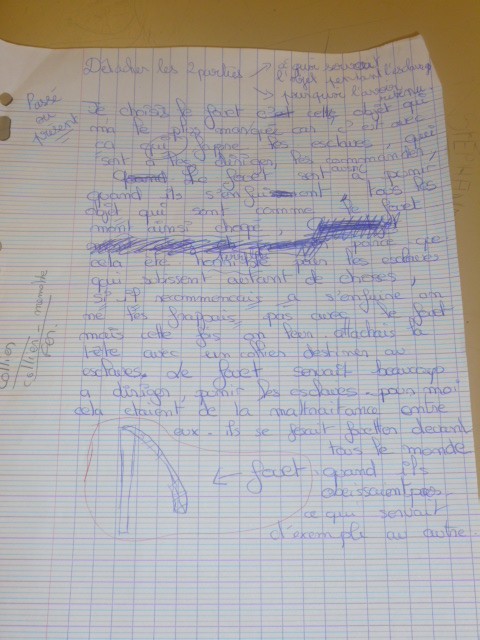 Détacher les 2 parties → à quoi servait l'objet pendant l'esclavage
→ pourquoi l'avoir retenu
Passé ou présent
Je choisis le foret cette objet qui
ma le plus marquée car c'est avec
ça qui les esclaves, qui
sert à les diriger, les commander,
Le foret sert à punir
quand ils s'enfui tous les
objet qui sont comme le foret
mont ainsi choqué,
parce que
cela été horrible pour les esclaves
qui subissent autant de choses,
Si il recommencais à s'enfuire on
ne les frappais pas avec le foret
mais cette fois on leur attachais la
tête avec un collier destiner au
esclaves. Le foret servait beaucoup
a diriger, punir les esclaves. pour moi
cela étaient de la maltraitance contre
eux. ils se fesait foretter devant
tous le monde
← foret quand ils
obeissaient pas
ce qui servait
d'exemple au autre.
collier
collier - menotte
Fer.